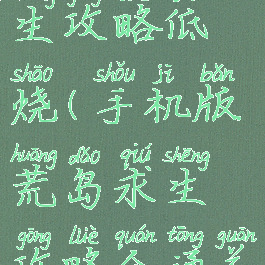 生攻略低
shāo shǒu jī bǎn
烧(手机版
huāng dǎo qiú shēng
荒岛求生
gōng lüè quán tōng guān